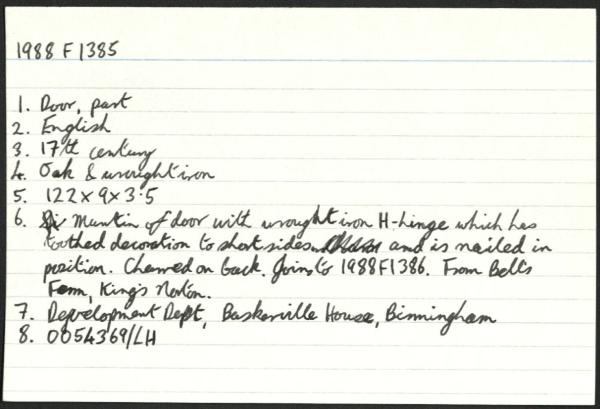 1988 F 1385
1. Door, part
2. English
3. 17th century
4. Oak & wrought iron
5. 122 x 9 x 3.5
6. Muntin of door with wrought iron H-hinge which has
toothed decoration to short sides and is nailed in
position. Charred on back. Joins to 1988F1386. From Bell's
Farm, King's Norton.
7. Depvelopment Dept, Baskerville House, Birmingham
8. 0054369/LH